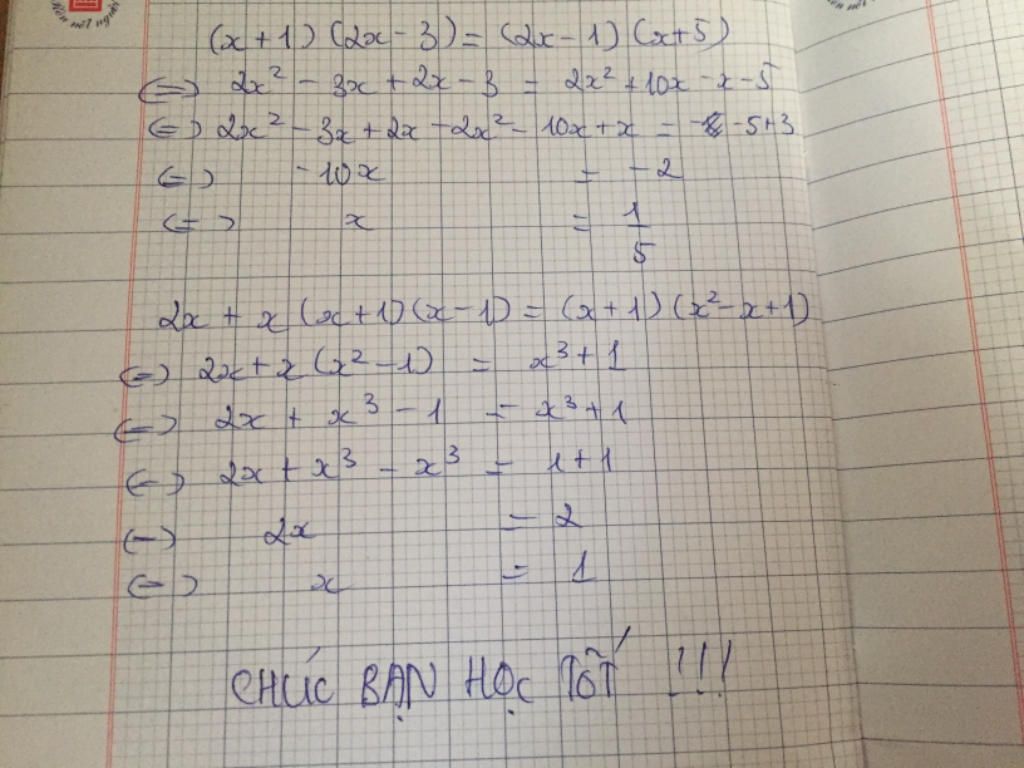 Nên nét người
(x+1)(2x-3) = (2x-1)(x+5)
(=) 2x² - 3x + 2x - 3 = 2x² + 10x - x - 5
(=) 2x² - 3x + 2x - 2x² - 10x + x = -5+3
(=) -10x = -2
(=) x = 1/5
2x + x(x+1)(x-1) = (x+1)(x²-x+1)
(=) 2x + x(x²-1) = x³+1
(=) 2x + x³ - 1 = x³+1
(=) 2x + x³ - x³ = 1+1
(=) 2x = 2
(=) x = 1
CHÚC BẠN HỌC TỐT !!!